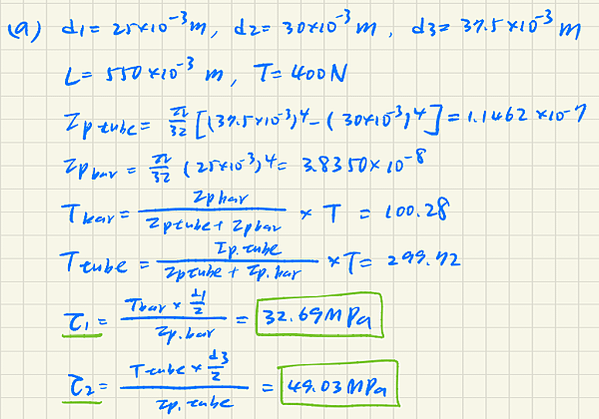 (a) d1 = 25×10⁻³ m, d2 = 30×10⁻³ m, d3 = 37.5×10⁻³ m
L = 550×10⁻³ m, T = 400N
Ip-tube = π/32 [(37.5×10⁻³)⁴ - (30×10⁻³)⁴] = 1.1462×10⁻⁷
Ip bar = π/32 (25×10⁻³)⁴ = 3.8350×10⁻⁸
Tbar = Ip bar / (Ip tube + Ip bar) × T = 100.28
Ttube = Ip.tube / (Ip tube + Ip.bar) × T = 299.72
τ1 = (Tbar × d1/2) / Ip.bar = 32.69MPa
τ2 = (Ttube × d3/2) / Ip.tube = 49.03MPa